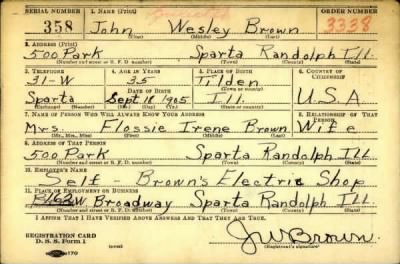 SERIAL NUMBER 1. NAME (Print) ORDER NUMBER
358 John Wesley Brown 3338
(First) (Middle) (Last)
2. ADDRESS (Print)
500 Park Sparta Randolph Ill.
(Number and street or R. F. D. number) (Town) (County) (State)
3. TELEPHONE 4. AGE IN YEARS 5. PLACE OF BIRTH 6. COUNTRY OF CITIZENSHIP
31-W 35 Tilden
DATE OF BIRTH (Town or county)
Sparta Sept 18 1905 Ill. U.S.A
(Exchange) (Number) (Mo.) (Day) (Yr.) (State or country)
7. NAME OF PERSON WHO WILL ALWAYS KNOW YOUR ADDRESS 8. RELATIONSHIP OF THAT PERSON
Mrs. Flossie Irene Brown Wife
(Mr., Mrs., Miss) (First) (Middle) (Last)
9. ADDRESS OF THAT PERSON
500 Park Sparta Randolph Ill.
(Number and street or R. F. D. number) (Town) (County) (State)
10. EMPLOYER'S NAME
Self - Brown's Electric Shop
11. PLACE OF EMPLOYMENT OR BUSINESS
W Broadway Sparta Randolph Ill.
(Number and street or R. F. D. number) (Town) (County) (State)
I AFFIRM THAT I HAVE VERIFIED ABOVE ANSWERS AND THAT THEY ARE TRUE.
REGISTRATION CARD
D. S. S. Form 1 (over) JW Brown
(Registrant's signature)